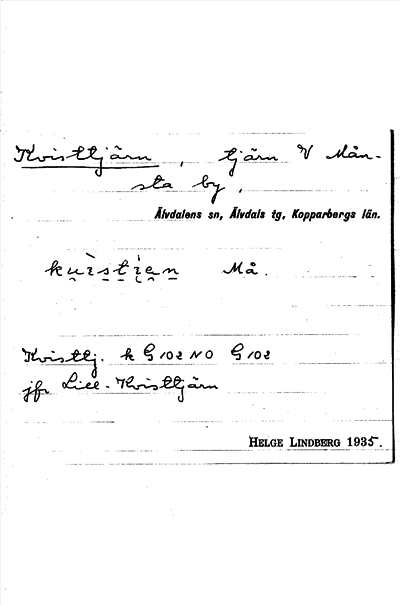 Kvisttjärn, tjärn V Mån-
sta by.
Älvdalens sn, Älvdals tg, Kopparbergs län.
Må.
Kvisttj. k G 102 NO G 102
jfr Lill-Kvisttjärn
HELGE LINDBERG 1935.